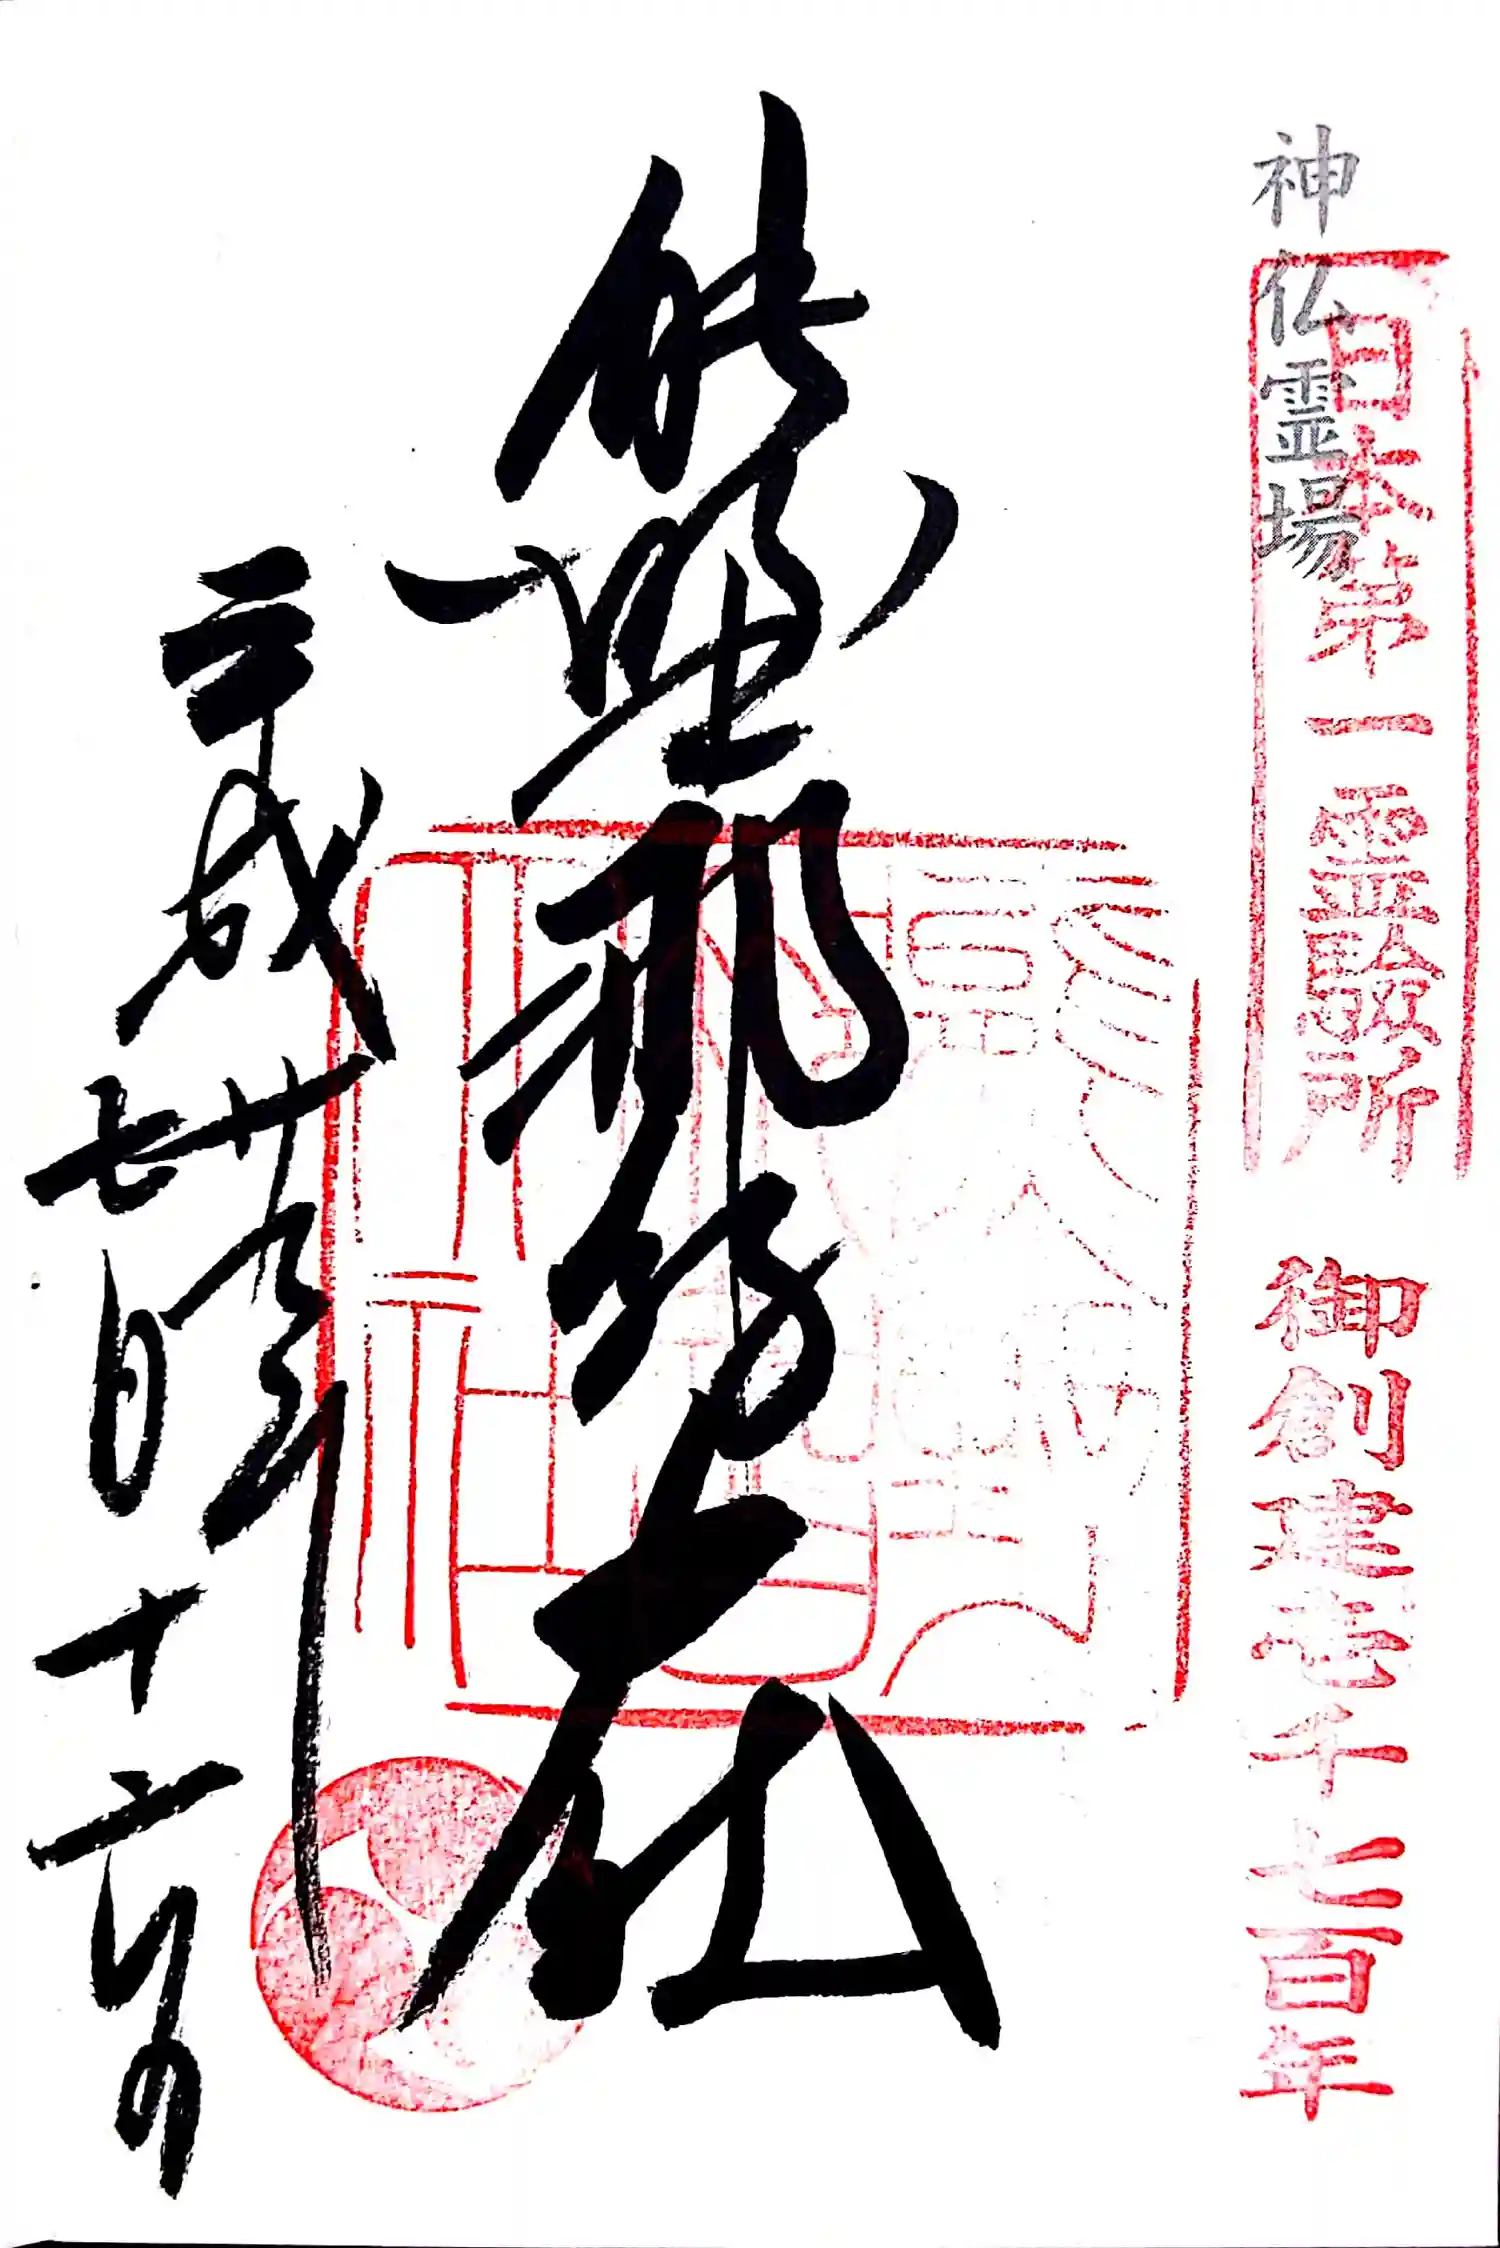 日本第一霊験所
御創建壱千七百年
神仏霊場
熊野那智大社
平成廿九年
七月十六日